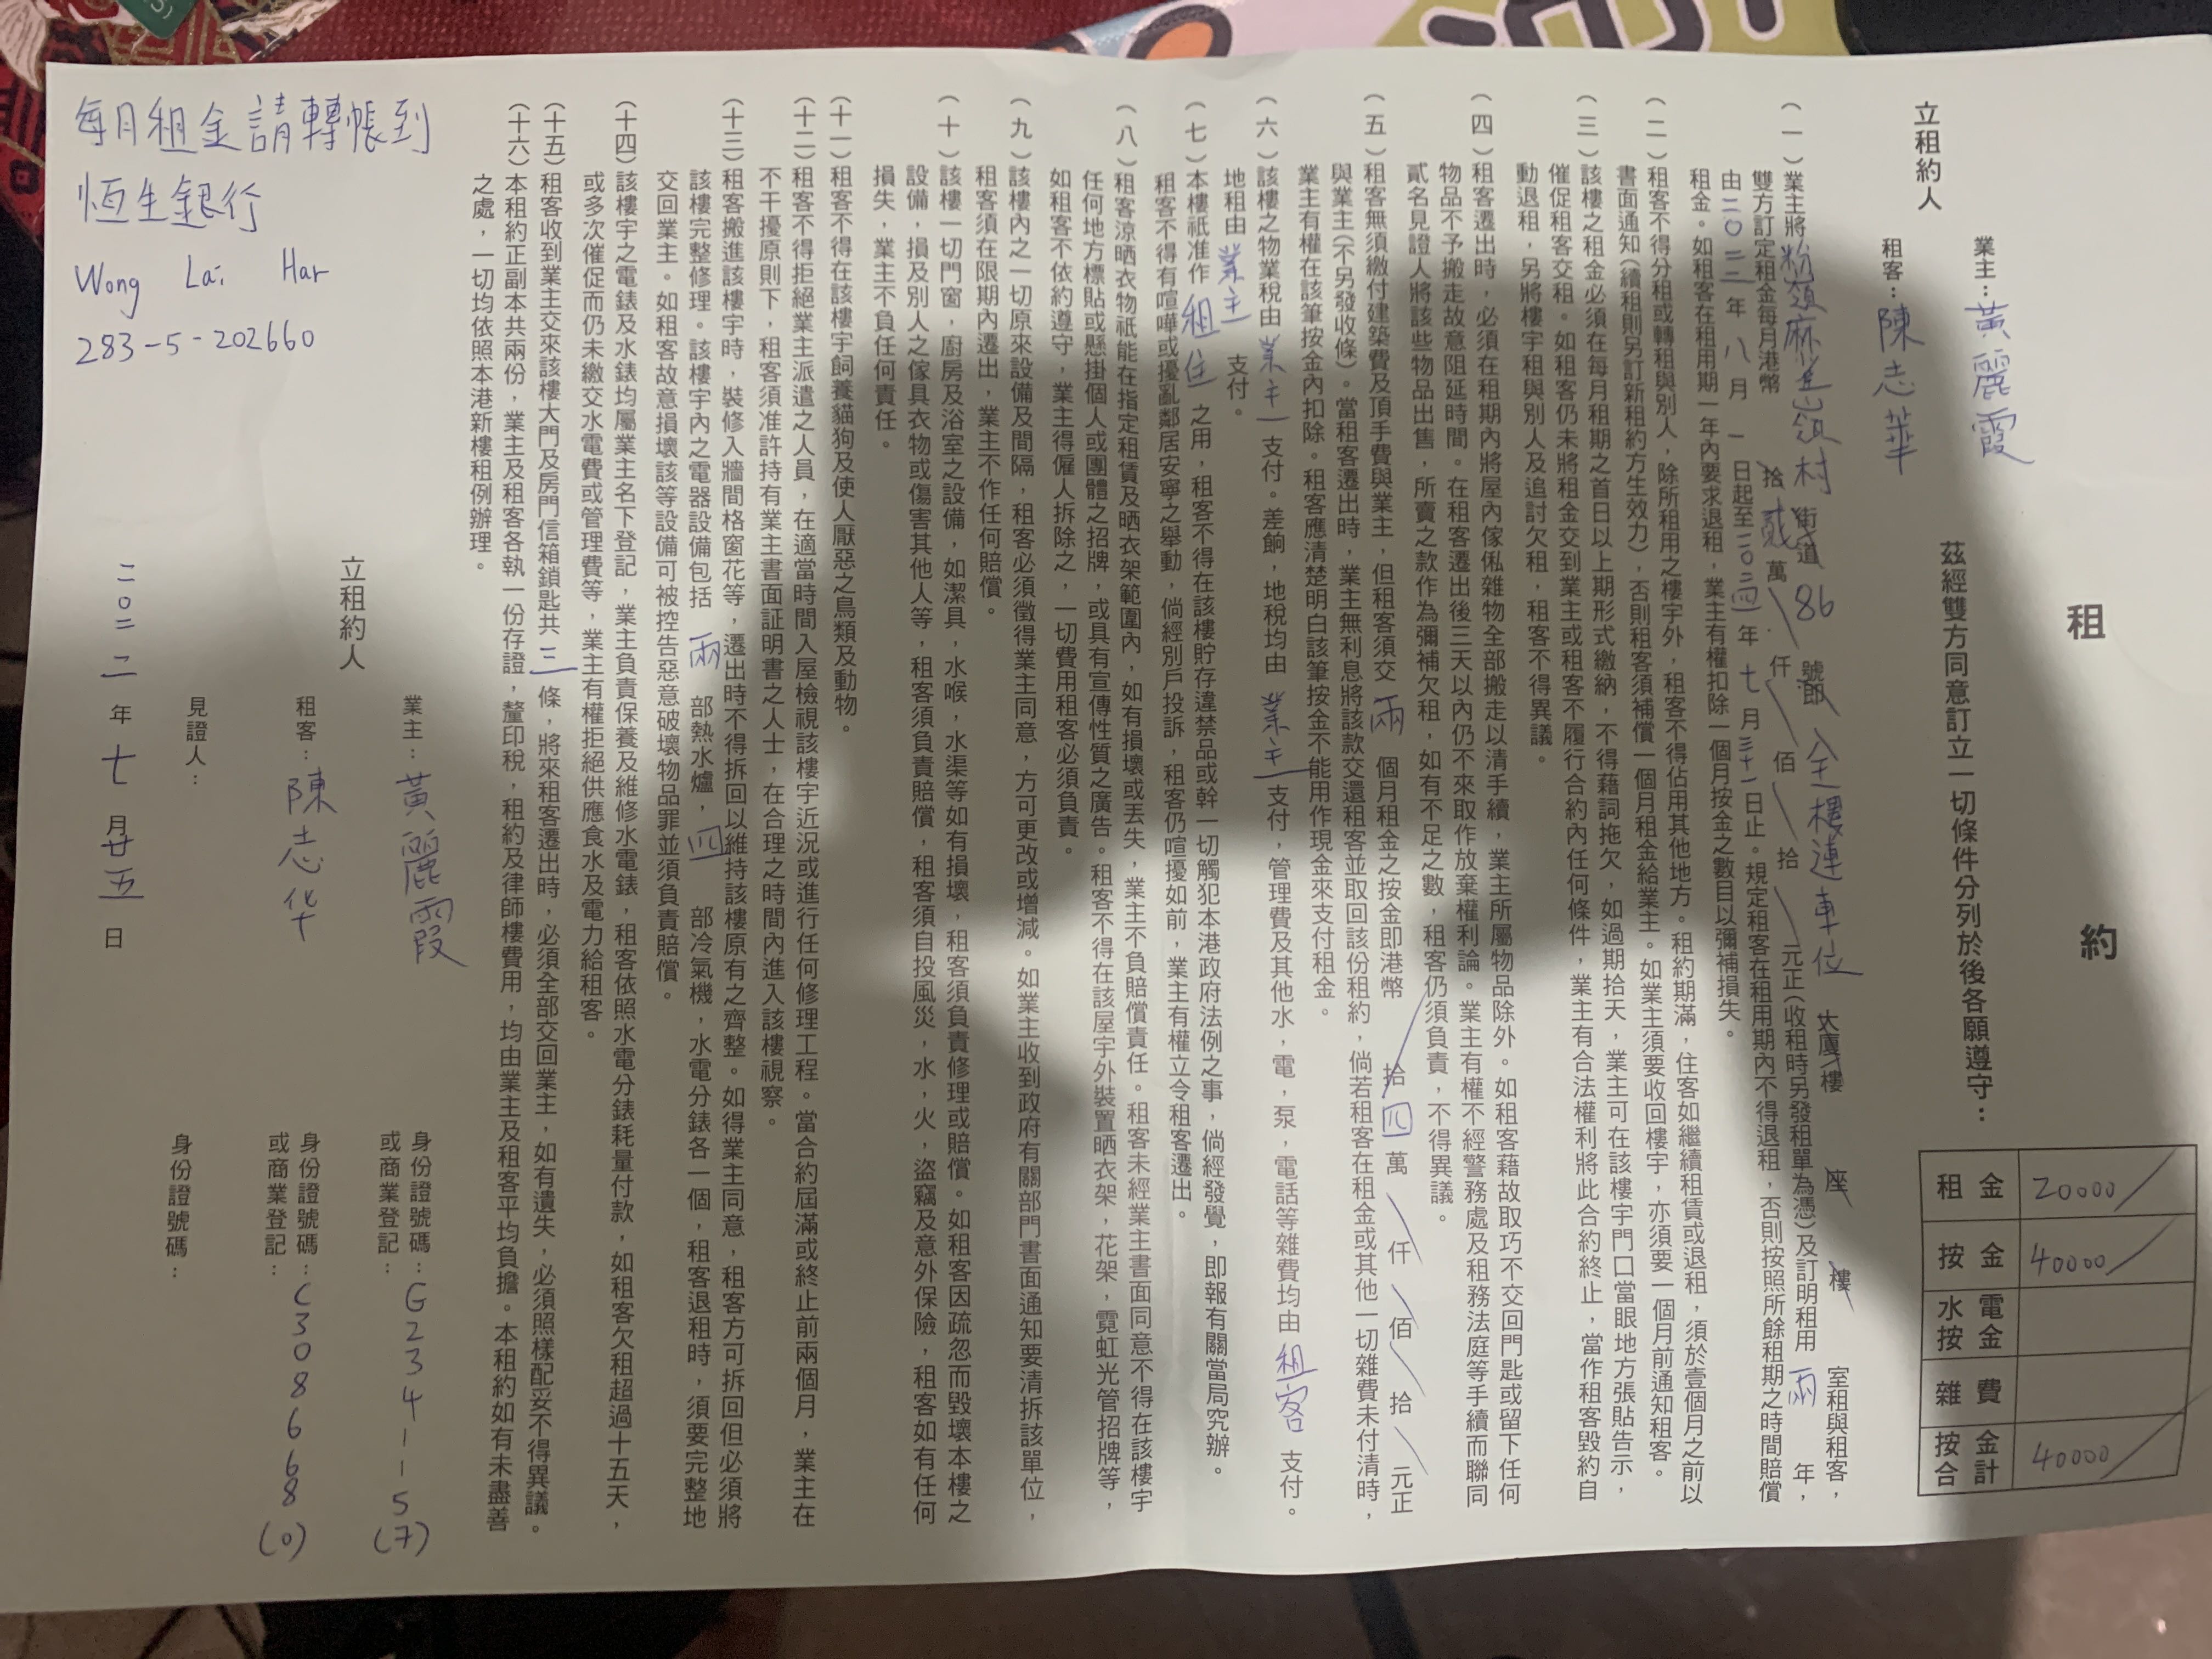 租約
立租約人
業主：黃麗霞
租客：陳志華
茲經雙方同意訂立一切條件分列於後各願遵守：
租金 20000/
按金 40000/
水電按金
雜費
按金合計 40000/
（一）業主將粉嶺麻笏 村街道86號即全樓連車位大廈樓 座 樓 室租與租客，
雙方訂定租金每月港幣 拾貳萬 仟 佰 拾 元正（收租時另發租單為憑）及訂明租用兩年，
由二〇二二年八月一日起至二〇二四年七月三十一日止。規定租客在租用期內不得退租，否則按照所餘租期之時間賠償
租金。如租客在租用期一年內要求退租，業主有權扣除一個月按金之數目以彌補損失。
（二）租客不得分租或轉租與別人，除所租用之樓宇外，租客不得佔用其他地方。租約期滿，住客如繼續租賃或退租，須於壹個月之前以
書面通知（續租則另訂新租約方生效力），否則租客須補償一個月租金給業主。如業主須要收回樓宇，亦須要一個月前通知租客。
（三）該樓之租金必須在每月租期之首日以上期形式繳納，不得藉詞拖欠，如過期拾天，業主可在該樓宇門口當眼地方張貼告示，
催促租客交租。如租客仍未將租金交到業主或租客不履行合約內任何條件，業主有合法權利將此合約終止，當作租客毀約自
動退租，另將樓宇租與別人及追討欠租，租客不得異議。
（四）租客遷出時，必須在租期內將屋內傢俬雜物全部搬走以清手續，業主所屬物品除外。如租客藉故取巧不交回門匙或留下任何
物品不予搬走故意阻延時間。在租客遷出後三天以內仍不來取作放棄權利論。業主有權不經警務處及租務法庭等手續而聯同
貳名見證人將該些物品出售，所賣之款作為彌補欠租，如有不足之數，租客仍須負責，不得異議。
（五）租客無須繳付建築費及頂手費與業主，但租客須交兩個月租金之按金即港幣 拾四萬 仟 佰 拾 元正
與業主（不另發收條）。當租客遷出時，業主無利息將該款交還租客並取回該份租約，倘若租客在租金或其他一切雜費未付清時，
業主有權在該筆按金內扣除。租客應清楚明白該筆按金不能用作現金來支付租金。
（六）該樓之物業稅由業主支付。差餉，地稅均由業主支付，管理費及其他水，電，泵，電話等雜費均由租客支付。
地租由業主支付。
（七）本樓祇准作租住之用，租客不得在該樓貯存違禁品或幹一切觸犯本港政府法例之事，倘經發覺，即報有關當局究辦。
租客不得有喧嘩或擾亂鄰居安寧之舉動，倘經別戶投訴，租客仍喧擾如前，業主有權立令租客遷出。
（八）租客涼晒衣物祇能在指定租賃及晒衣架範圍內，如有損壞或丟失，業主不負賠償責任。租客未經業主書面同意不得在該樓宇
任何地方標貼或懸掛個人或團體之招牌，或具有宣傳性質之廣告。租客不得在該屋宇外裝置晒衣架，花架，霓虹光管招牌等，
如租客不依約遵守，業主得僱人拆除之，一切費用租客必須負責。
（九）該樓內之一切原來設備及間隔，租客必須徵得業主同意，方可更改或增減。如業主收到政府有關部門書面通知要清拆該單位，
租客須在限期內遷出，業主不作任何賠償。
（十）該樓一切門窗，廚房及浴室之設備，如潔具，水喉，水渠等如有損壞，租客須負責修理或賠償。如租客因疏忽而毀壞本樓之
設備，損及別人之傢具衣物或傷害其他人等，租客須負責賠償，租客須自投風災，水，火，盜竊及意外保險，租客如有任何
損失，業主不負任何責任。
（十一）租客不得在該樓宇飼養貓狗及使人厭惡之鳥類及動物。
（十二）租客不得拒絕業主派遣之人員，在適當時間入屋檢視該樓宇近況或進行任何修理工程。當合約屆滿或終止前兩個月，業主在
不干擾原則下，租客須准許持有業主書面証明書之人士，在合理之時間內進入該樓視察。
（十三）租客搬進該樓宇時，裝修入牆間格窗花等，遷出時不得拆回以維持該樓原有之齊整。如得業主同意，租客方可拆回但必須將
該樓完整修理。該樓宇內之電器設備包括兩部熱水爐，四部冷氣機，水電分錶各一個，租客退租時，須要完整地
交回業主。如租客故意損壞該等設備可被控告惡意破壞物品罪並須負責賠償。
（十四）該樓宇之電錶及水錶均屬業主名下登記，業主負責保養及維修水電錶，租客依照水電分錶耗量付款，如租客欠租超過十五天，
或多次催促而仍未繳交水電費或管理費等，業主有權拒絕供應食水及電力給租客。
（十五）租客收到業主交來該樓大門及房門信箱鎖匙共三條，將來租客遷出時，必須全部交回業主，如有遺失，必須照樣配妥不得異議。
（十六）本租約正副本共兩份，業主及租客各執一份存證，釐印稅，租約及律師樓費用，均由業主及租客平均負擔。本租約如有未盡善
之處，一切均依照本港新樓租例辦理。
立租約人
業主：黃麗霞
身份證號碼：
或商業登記：
G234115(7)
租客：陳志华
身份證號碼：
或商業登記：
C308668(0)
見證人：
身份證號碼：
二〇二二年七月廿五日
每月租金請轉帳到
恒生銀行
Wong Lai Har
283-5-202660